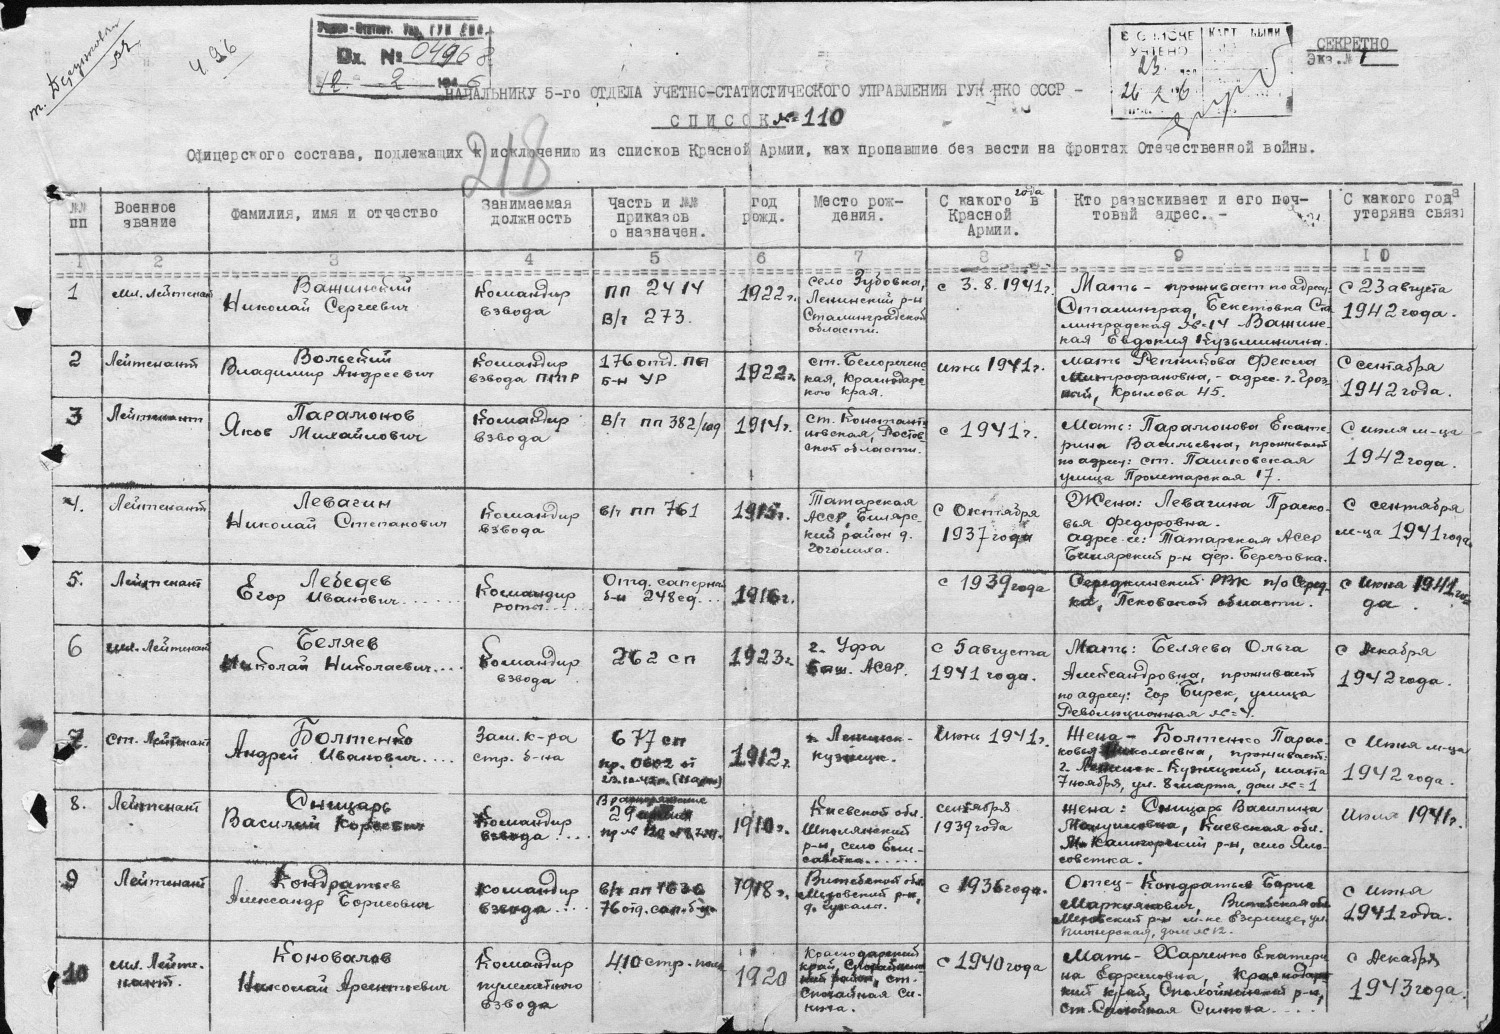 т. Бегунов
496
Учетно-Статист. Упр. ГУК НКО
Вх. № 04968
12 2 1946
В СПИСКЕ
УЧТЕНО
КАРТ БЫЛИ
23
26 2 6
СЕКРЕТНО
Экз.№ 1
НАЧАЛЬНИКУ 5-го ОТДЕЛА УЧЕТНО-СТАТИСТИЧЕСКОГО УПРАВЛЕНИЯ ГУК НКО СССР -
СПИСОК № 110
218
Офицерского состава, подлежащих к исключению из списков Красной Армии, как пропавшие без вести на фронтах Отечественной войны.
№№ пп
Военное звание
Фамилия, имя и отчество
Занимаемая должность
Часть и №№ приказов о назначен.
год рожд.
Место рождения.
С какого года в Красной Армии.
Кто разыскивает и его почтовый адрес. -
С какого года утеряна связь
1 2 3 4 5 6 7 8 9 10
1
мл. Лейтенант
Важинский
Николай Сергеевич
Командир
взвода
пп 2414
В/ч 273.
1922 г.
село Зубовка,
Ленинский р-н
Сталинградской
области.
с 3.8.1941 г.
Мать - проживает по адресу
Сталинград, Бекетовка Ста
линградская № 14 Важинс-
кая Евдокия Кузьминична.
С 23 августа
1942 года.
2
Лейтенант
Вольский
Владимир Андреевич
Командир
взвода ППР
176 отд. пп
б-н УР
1922 г.
ст. Белоречен
ская, Краснодарс
кого края.
июнь 1941 г.
мать Репникова Фекла
Митрофановна, - адрес г. Гроз-
ный, Крылова 45.
С сентября
1942 года.
3
Лейтенант
Парамонов
Яков Михайлович
Командир
взвода
В/ч пп 382/
1914 г.
ст. Константи
новская, Ростов
ской области.
с 1941 г.
Мать: Парамонова Екате-
рина Васильевна, проживает
по адресу: ст. Пашковская
улица Пролетарская 17.
С июля м-ца
1942 года.
4.
Лейтенант
Левагин
Николай Степанович
Командир
взвода
в/ч пп 761
1915 г.
Татарская
АССР, Билярс-
кий район д.
С Октября
1937 года
Жена: Левагина Праско-
вья Федоровна.
адрес ее: Татарская АССР
Билярский р-н дер. Березовка.
С сентября
м-ца 1941 года.
5.
Лейтенант
Лебедев
Егор Иванович......
Командир
роты.....
Отд. саперный
б-н 248 сд....
1916 г.
с 1939 года
Середкинский РВК п/о Серед-
ка, Псковской области.
с Июня 1941 го
да.
6
мл. Лейтенант
Беляев
Николай Николаевич....
Командир
взвода
262 сп
1923 г.
г. Уфа
Баш. АССР.
с 5 августа
1941 года.
Мать: Беляева Ольга
Александровна, проживает
по адресу: гор Бирск, улица
Революционная № 4.
с декабря
1942 года.
7.
ст. Лейтенант
Болтенко
Андрей Иванович....
Зам. к-ра
стр. б-на
677 сп
пр. 0602 от
1912 г.
г. Ленинск-
кузнецк.
Июнь 1941 г.
Жена - Болтенко Парас-
ковья Николаевна, проживает:
г. Ленинск-Кузнецкий, шахта
7 ноября, ул. 8 марта, дом № 1
с Июня м-ца
1942 года.
8.
Лейтенант
Сницарь
Василий
Командир
взвода....
В распоряжение
29 армии
1910 г.
Киевской обл.
Шполянский
р-н, село Ели-
саветка......
сентября
1939 года
жена: Сницарь Василина
Киевская обл.
р-н, село
Июля 1941 г.
9
Лейтенант
Кондратьев
Александр Борисович
командир
взвода....
в/ч пп
76 отд. сап. б-н
1918 г.
Витебской обл
Меховский р-н,
с 1936 года.
Отец - Кондратьев Борис
Маркиянович, Витебская обл
Меховский р-н м-ко Езерище, ул.
Пионерская, дом № 12.
с Июня
1941 года.
10
мл. Лейте-
нант.
Коновалов
Николай Арентьевич
Командир
пулеметного
взвода
410 стр. полк
1920
Краснодарский
край, Спокойненс
кий район, ст.
Спокойная Си-
нюха.
с 1940 года
Мать - Харченко Екатери
на Ефремовна, Краснодарс
кий край, Спокойненский р-н,
ст. Спокойная Синюха....
с декабря
1943 года.